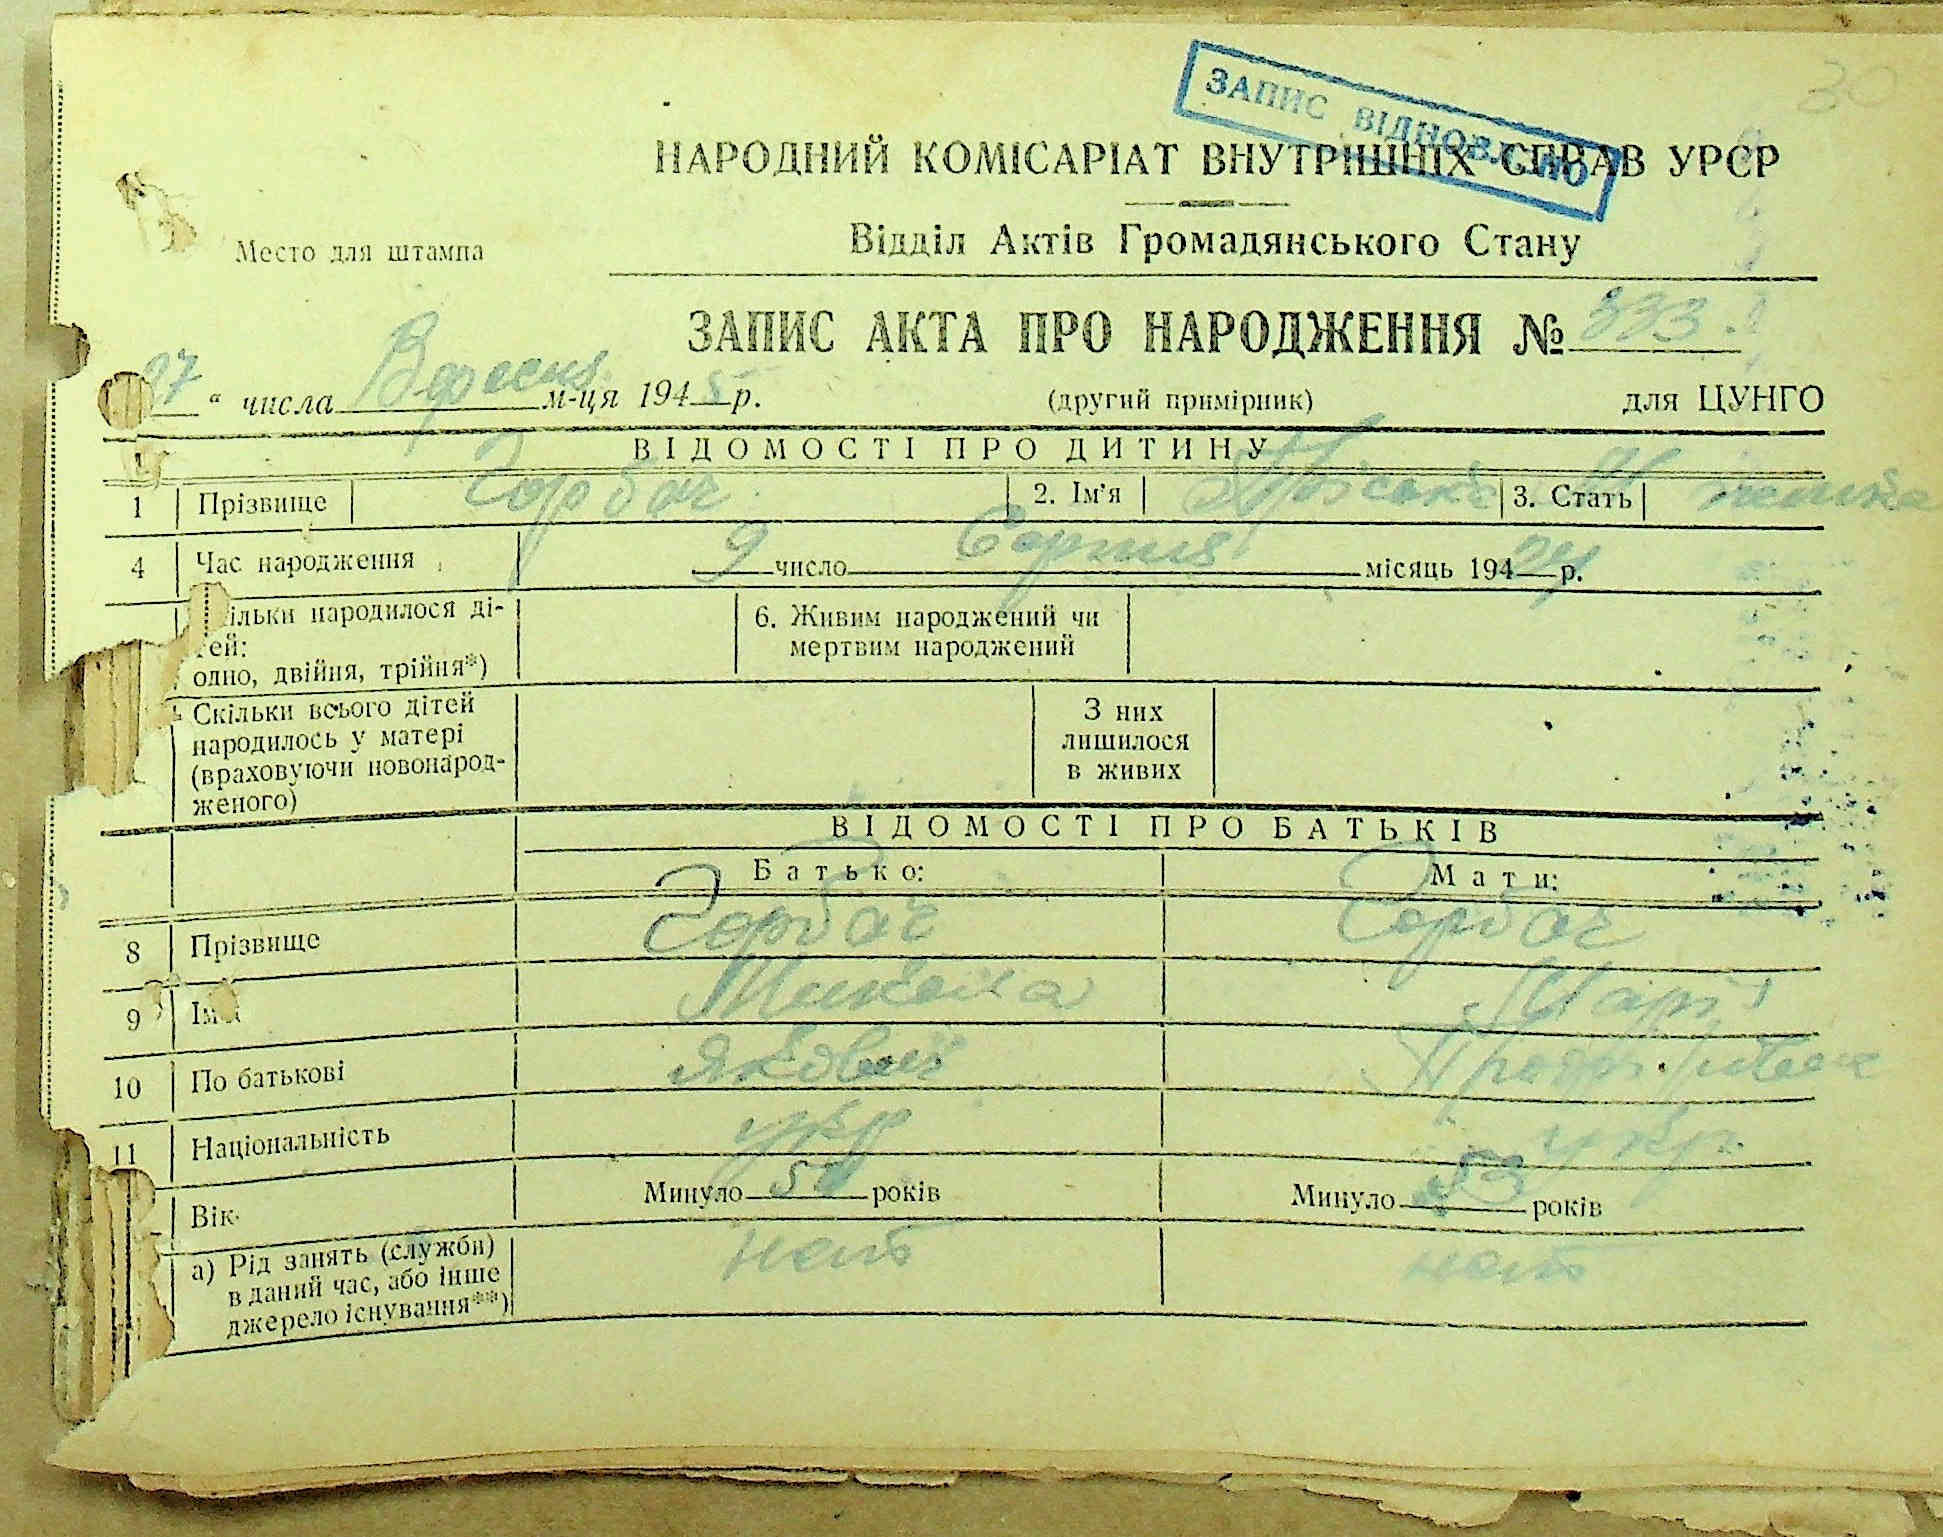 30
ЗАПИС ВІДНОВЛЕНО
НАРОДНИЙ КОМІСАРІАТ ВНУТРІШНІХ СПРАВ УРСР
Место для штампа
Відділ Актів Громадянського Стану
ЗАПИС АКТА ПРО НАРОДЖЕННЯ № 333
27 " числа Вересня м-ця 1945 р. (другий примірник) для ЦУНГО
ВІДОМОСТІ ПРО ДИТИНУ
1 Прізвище Горбач 2. Ім'я 3. Стать
4 Час народження 9 число Серпня місяць 194 24 р.
ільки народилося ді- 6. Живим народжений чи
тей: мертвим народжений
одно, двійня, трійня*)
Скільки всього дітей З них
народилось у матері лишилося
(враховуючи новонарод- в живих
женого)
ВІДОМОСТІ ПРО БАТЬКІВ
Батько: Мати:
8 Прізвище Горбач Горбач
9 Ім'я Микола Марія
10 По батькові
11 Національність укр укр.
Вік Минуло років Минуло 53 років
а) Рід занять (служби)
в даний час, або інше
джерело існування**)